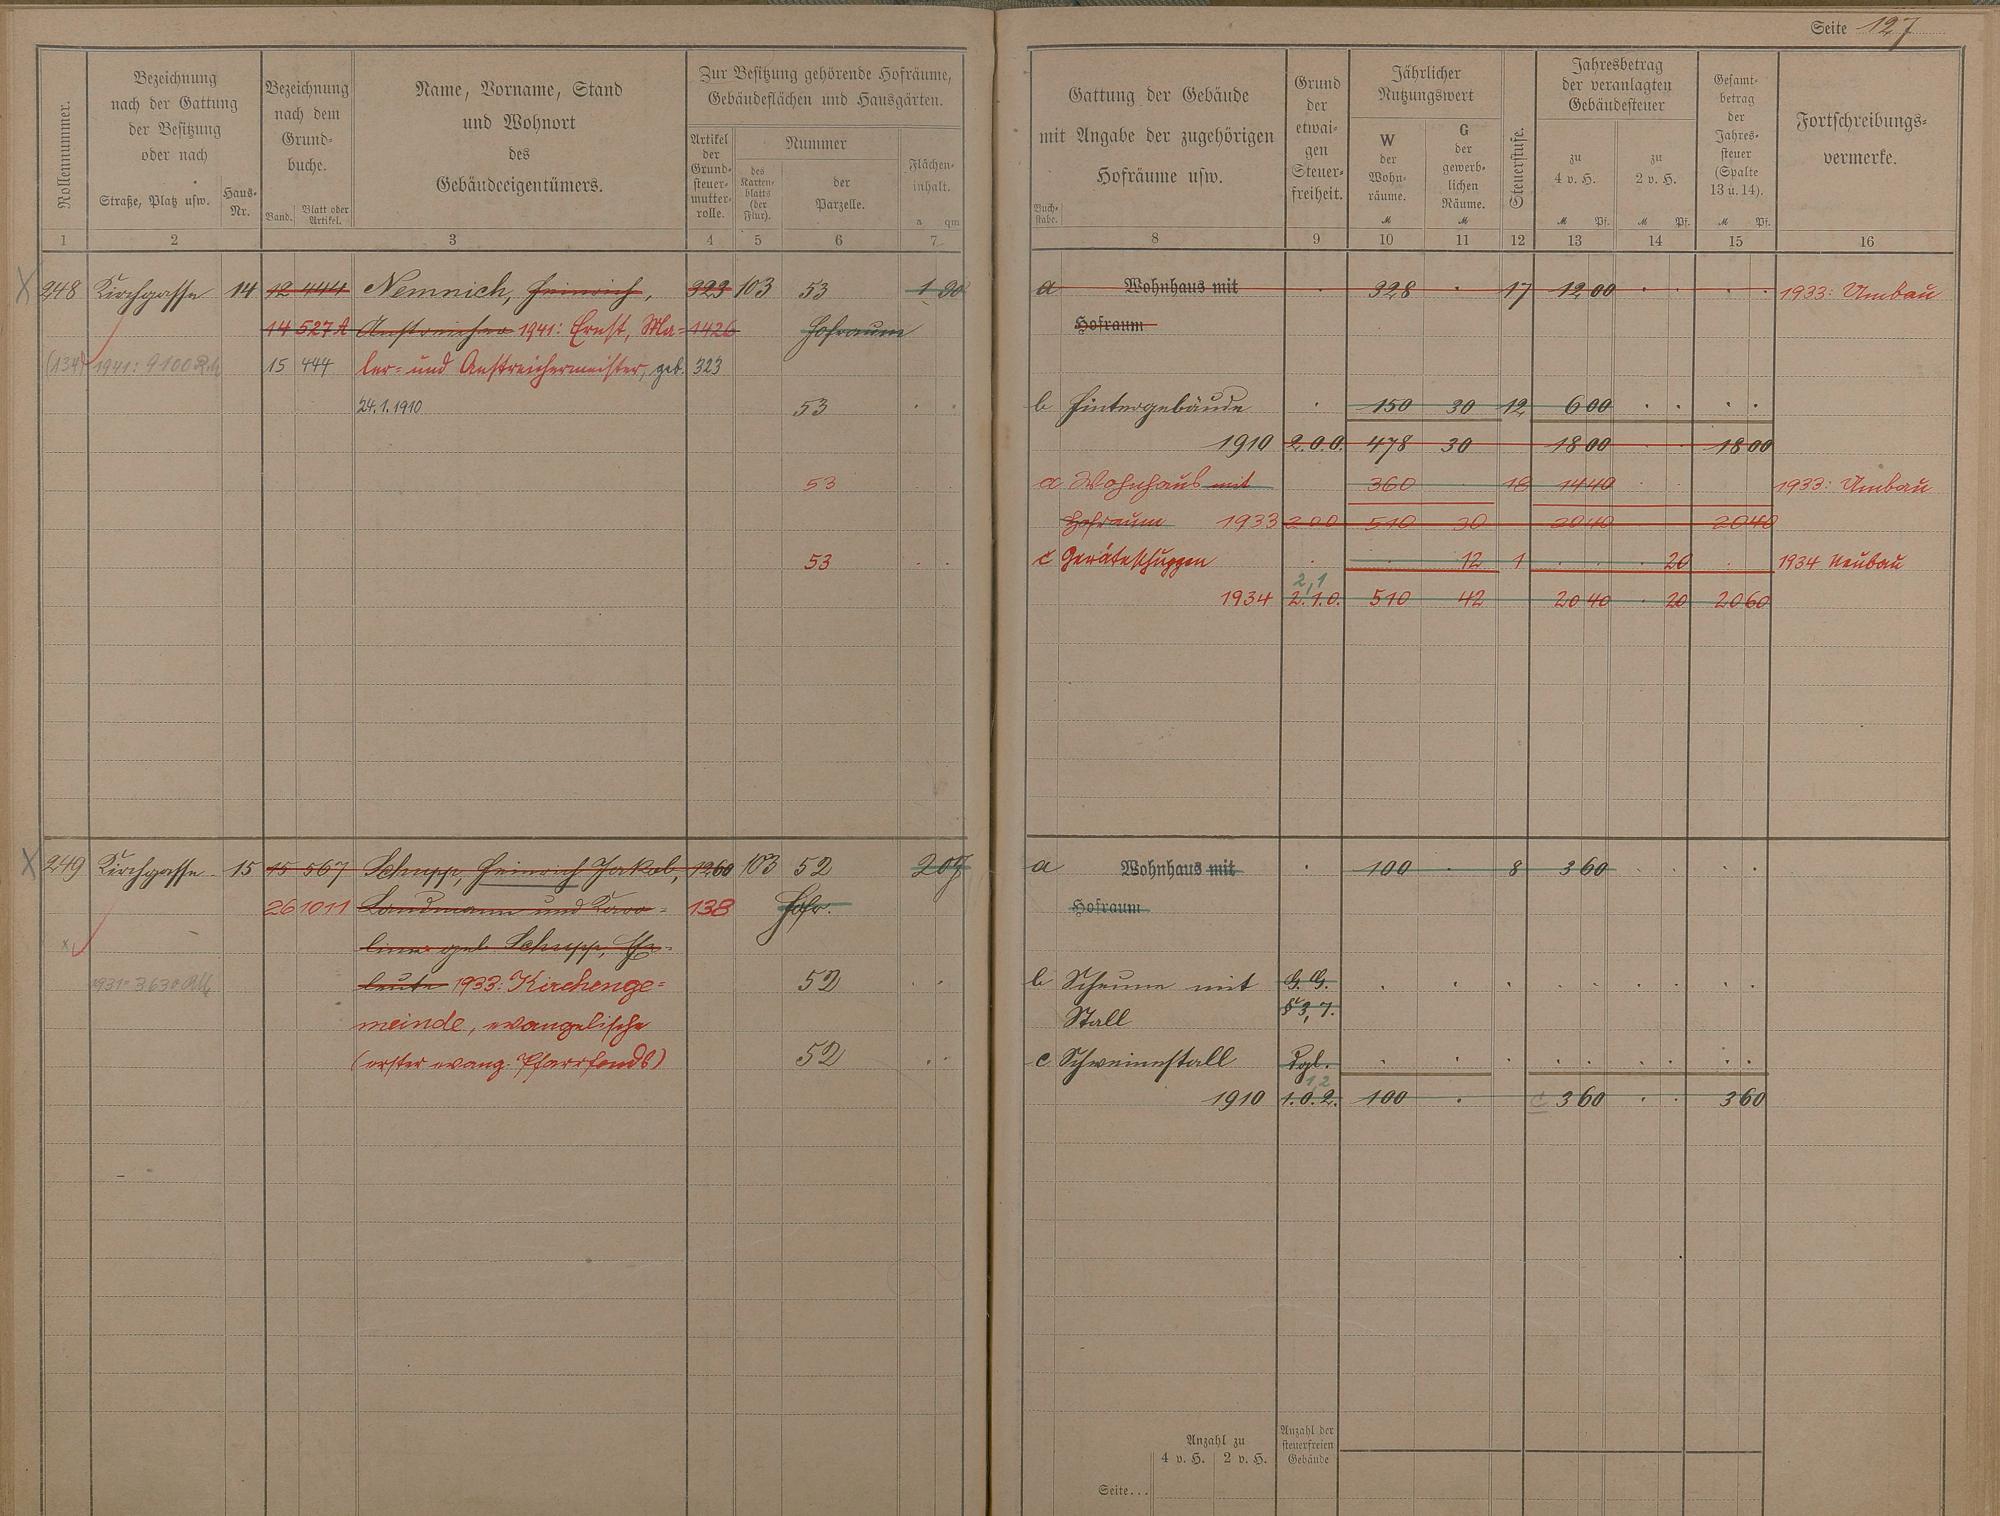 Seite 127
Rollennummer.
Bezeichnung
nach der Gattung
der Besitzung
oder nach
Straße, Platz usw.
Haus-
Nr.
Bezeichnung
nach dem
Grund-
buche.
Band.
Blatt oder
Artikel.
Name, Vorname, Stand
und Wohnort
des
Gebäudeeigentümers.
Zur Besitzung gehörende Hofräume,
Gebäudeflächen und Hausgärten.
Artikel
der
Grund-
steuer-
mutter-
rolle.
Nummer
des
Karten-
blatts
(der
Flur).
der
Parzelle.
Flächen-
inhalt.
a qm
1 2 3 4 5 6 7
Gattung der Gebäude
mit Angabe der zugehörigen
Hofräume usw.
Buch-
stabe.
Grund
der
etwai-
gen
Steuer-
freiheit.
Jährlicher
Nutzungswert
W
der
Wohn-
räume.
M
G
der
gewerb-
lichen
Räume.
M
Steuerstufe.
Jahresbetrag
der veranlagten
Gebäudesteuer
zu
4 v. H.
M Pf.
zu
2 v. H.
M Pf.
Gesamt-
betrag
der
Jahres-
steuer
(Spalte
13 u. 14).
M Pf.
Fortschreibungs-
vermerke.
8 9 10 11 12 13 14 15 16
X 248 Kirchgasse 14 12 444 Nemnich, Heinrich, 323 103 53 1 90 a Wohnhaus mit 328 17 12 00 1933: Umbau
14 527A Anstreicher 1941: Ernst, Ma- 1426 Hofraum Hofraum
(134) 1941: 9100 RM 15 444 ler- und Anstreichermeister, geb. 323
24.1.1910 53 b Hintergebäude 150 30 12 6 00
1910 2.0.0. 478 30 18 00 18 00
53 a Wohnhaus mit 360 18 14 40 1933: Umbau
Hofraum 1933 2 0 0 510 30 20 40 20 40
53 c Geräteschuppen 12 1 20 1934 Neubau
2,1
1934 2.1.0. 510 42 20 40 20 20 60
X 249 Kirchgasse 15 15 567 Schupp, Heinrich Jakob, 1260 103 52 2 07 a Wohnhaus mit 100 8 3 60
26 1011 Landmann und Karo- 138 Hofr. Hofraum
x line geb. Schupp, Ehe-
1931: 3630 RM leute 1933: Kirchenge- 52 b Scheune mit G. G.
meinde, evangelische Stall § 3, 7.
(erster evang. Pfarrfonds) 52 c Schweinestall Dgl.
1,2
1910 1.0.2. 100 3 60 3 60
Anzahl zu
4 v. H. 2 v. H.
Anzahl der
steuerfreien
Gebäude
Seite...